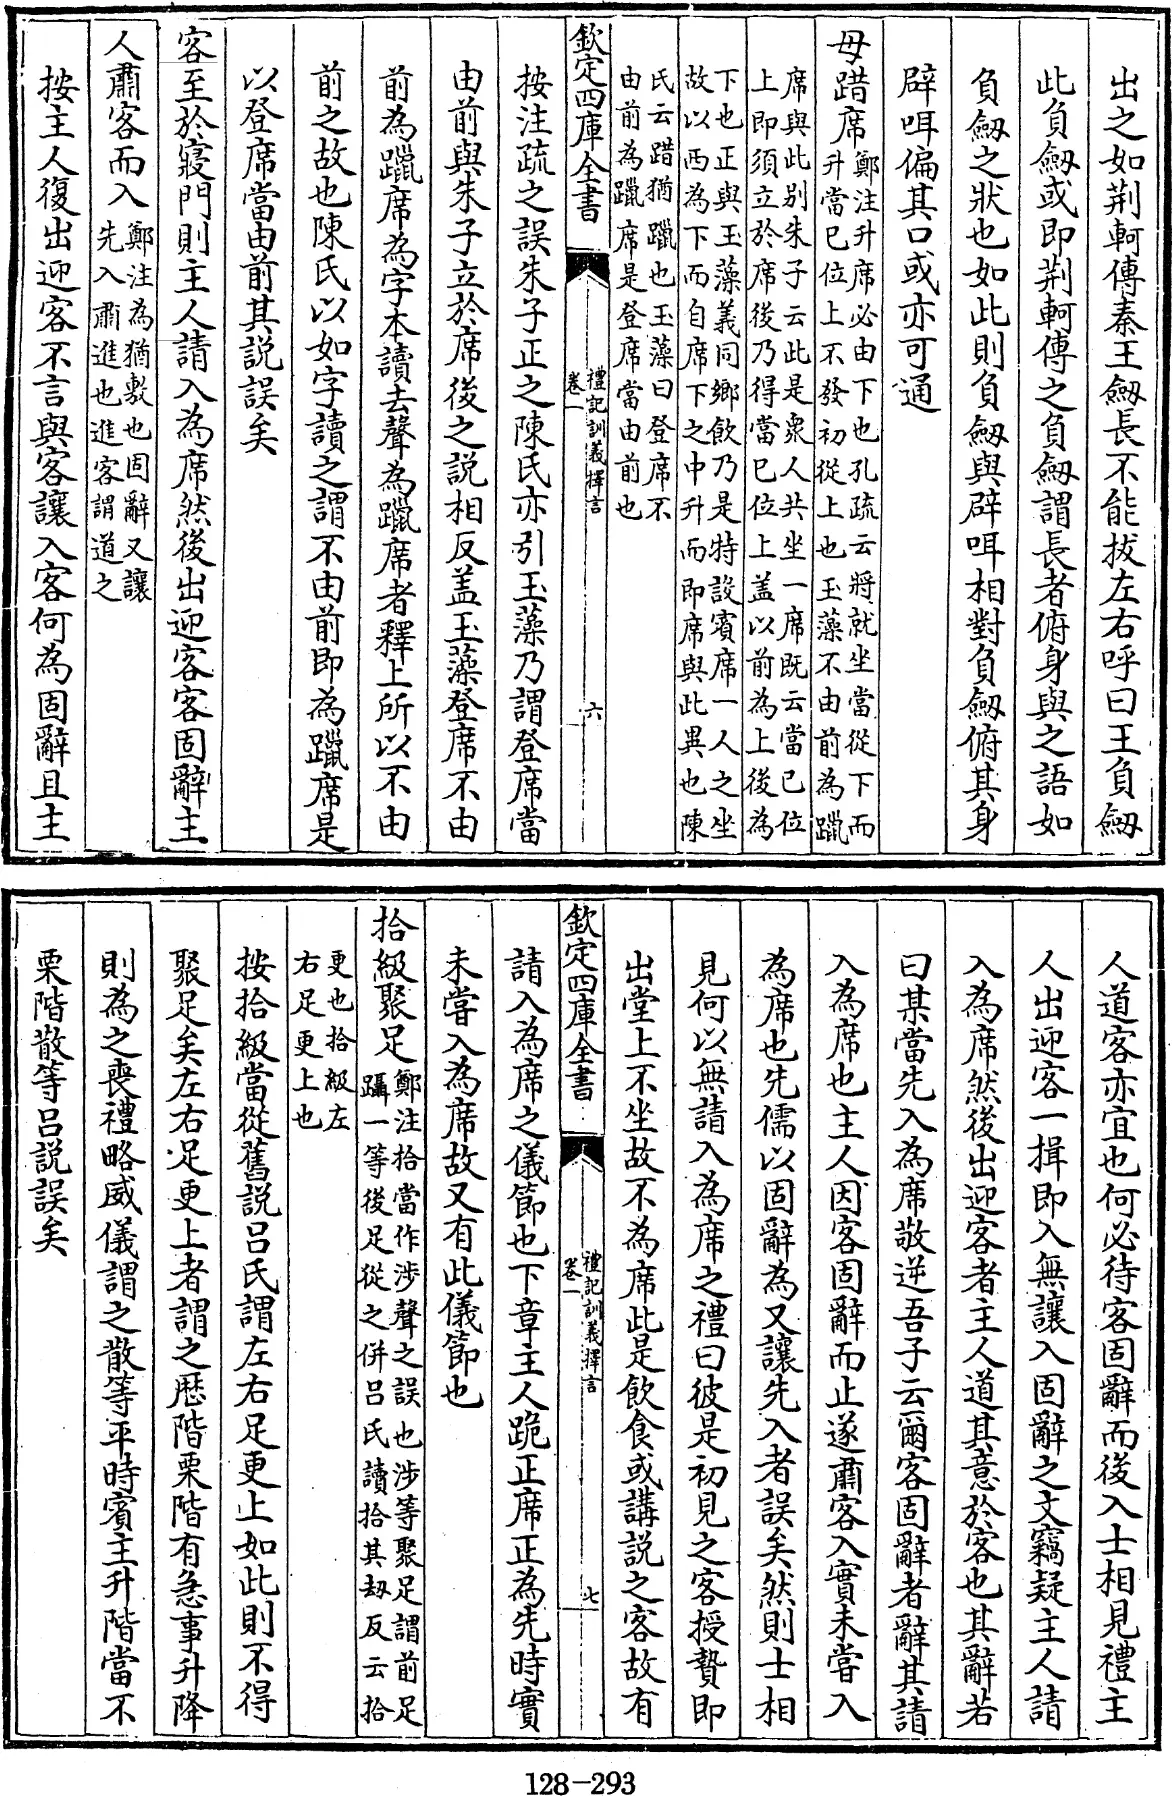 出之如荆軻傳秦王劒長不能拔左右呼曰王負劒
此負劒或即荆軻傳之負劒謂長者俯身與之語如
負劒之狀也如此則負劒與辟咡相對負劒俯其身
辟咡偏其口或亦可通
毋踖席鄭注升席必由下也孔疏云將就坐當從下而
升當己位上不發初從上也玉藻不由前為躐
席與此别朱子云此是衆人共坐一席既云當己位
上即須立於席後乃得當己位上盖以前為上後為
下也正與玉藻義同鄉飲乃是特設賓席一人之坐
故以西為下而自席下之中升而即席與此異也陳
氏云踖猶躐也玉藻曰登席不
由前為躐席是登席當由前也
欽定四庫全書
禮記訓義擇言
卷一
六
按注疏之誤朱子正之陳氏亦引玉藻乃謂登席當
由前與朱子立於席後之説相反盖玉藻登席不由
前為躐席為字本讀去聲為躐席者釋上所以不由
前之故也陳氏以如字讀之謂不由前即為躐席是
以登席當由前其説誤矣
客至於寢門則主人請入為席然後出迎客客固辭主
人肅客而入鄭注為猶敷也固辭又讓
先入肅進也進客謂道之
按主人復出迎客不言與客讓入客何為固辭且主
人道客亦宜也何必待客固辭而後入士相見禮主
人出迎客一揖即入無讓入固辭之文竊疑主人請
入為席然後出迎客者主人道其意於客也其辭若
曰某當先入為席敬逆吾子云爾客固辭者辭其請
入為席也主人因客固辭而止遂肅客入實未嘗入
為席也先儒以固辭為又讓先入者誤矣然則士相
見何以無請入為席之禮曰彼是初見之客授贄即
出堂上不坐故不為席此是飲食或講説之客故有
欽定四庫全書
禮記訓義擇言
卷一
七
請入為席之儀節也下章主人跪正席正為先時實
未嘗入為席故又有此儀節也
拾級聚足鄭注拾當作涉聲之誤也涉等聚足謂前足
躡一等後足從之併吕氏讀拾其刼反云拾
更也拾級左
右足更上也
按拾級當從舊説吕氏謂左右足更上如此則不得
聚足矣左右足更上者謂之歴階栗階有急事升降
則為之喪禮略威儀謂之散等平時賓主升階當不
栗階散等吕説誤矣
128-293